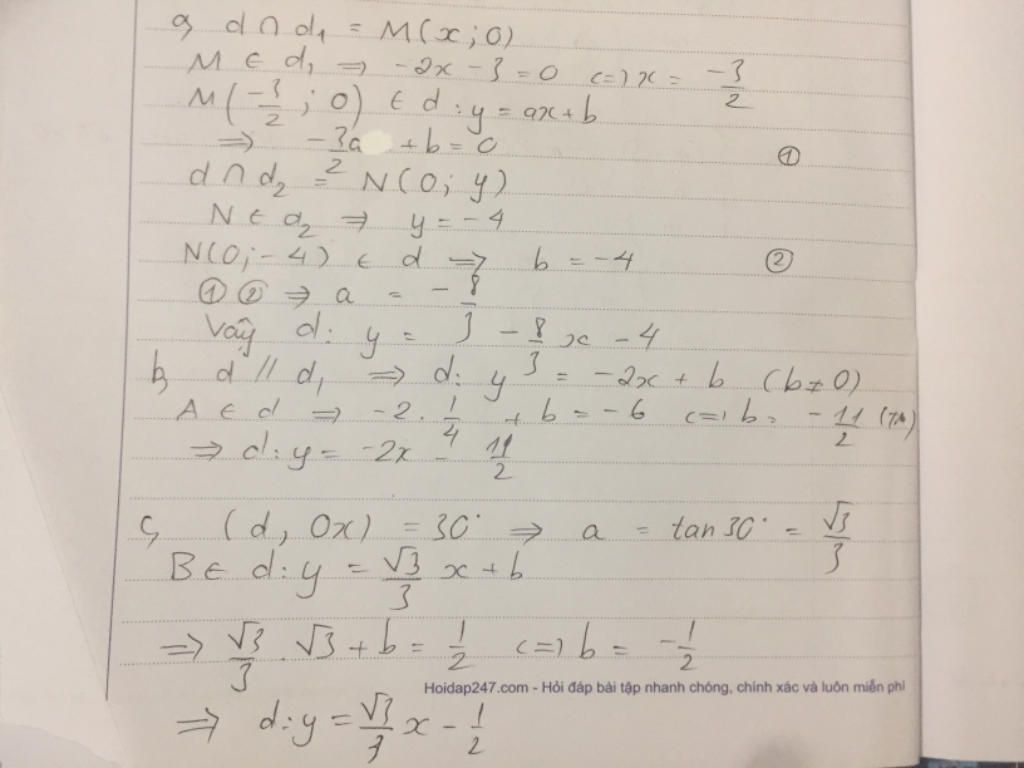 a, d ∩ d₁ = M(x; 0)
M ∈ d₁ ⇒ -2x - 3 = 0 <=> x = -3/2
M(-3/2; 0) ∈ d: y = ax + b
⇒ -3a/2 + b = 0 ①
d ∩ d₂ = N(0; y)
N ∈ d₂ ⇒ y = -4
N(0; -4) ∈ d ⇒ b = -4 ②
① ② ⇒ a = -8/3
Vậy d: y = -8/3 x - 4
b, d // d₁ ⇒ d: y = -2x + b (b ≠ 0)
A ∈ d ⇒ -2 . 1/4 + b = -6 <=> b = -11/2 (TM)
⇒ d: y = -2x - 11/2
c, (d, Ox) = 30° ⇒ a = tan 30° = √3/3
B ∈ d: y = √3/3 x + b
⇒ √3/3 . √3 + b = 1/2 <=> b = -1/2
Hoidap247.com - Hỏi đáp bài tập nhanh chóng, chính xác và luôn miễn phí
⇒ d: y = √3/3 x - 1/2